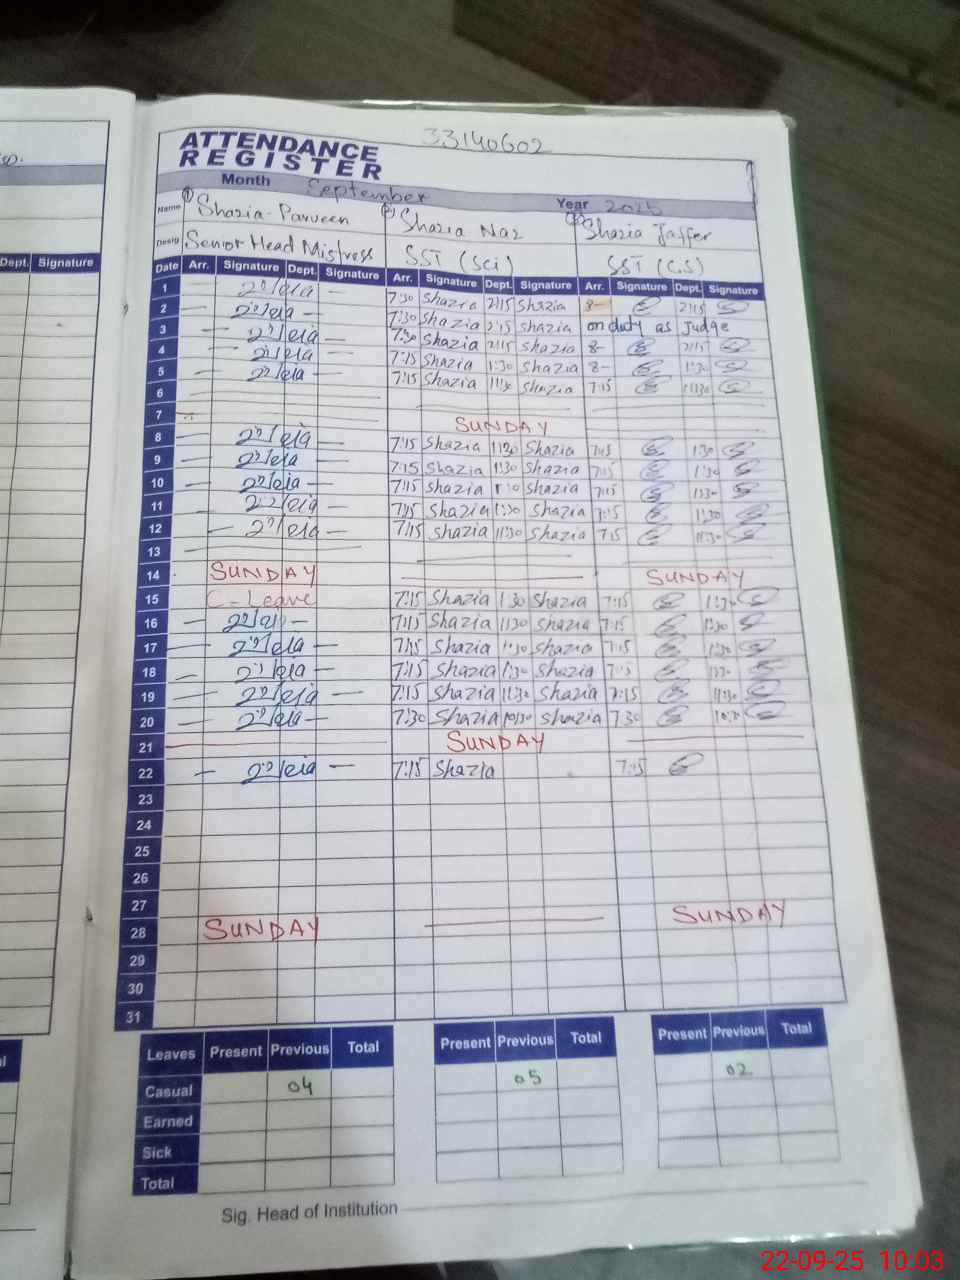 33140602
ATTENDANCE
REGISTER
Month September Year 2025
Name ① Shazia Parveen ② Shazia Naz Shazia Jaffer
Desig Senior Head Mistress SST (Sci) SST (C.S)
Dept. Signature
Date Arr. Signature Dept. Signature Arr. Signature Dept. Signature Arr. Signature Dept. Signature
1 7:30 Shazia 2:15 Shazia 8- 2:15
2 7:30 Shazia 2:15 Shazia on duty as Judge
3 7:30 Shazia 2:15 Shazia 8- 2:15
4 7:15 Shazia 1:30 Shazia 8- 1:30
5 7:15 Shazia 11:30 Shazia 7:15 11:30
6
7 SUNDAY
8 7:15 Shazia 1:30 Shazia 7:15 1:30
9 7:15 Shazia 1:30 Shazia 7:15 1:30
10 7:15 Shazia Shazia 7:15 1:30
11 7:15 Shazia 1:30 Shazia 7:15 1:30
12 7:15 Shazia 11:30 Shazia 7:15 11:30
13
14 SUNDAY SUNDAY
15 C-Leave 7:15 Shazia 1:30 Shazia 7:15 1:30
16 7:15 Shazia 1:30 Shazia 7:15 1:30
17 7:15 Shazia 1:30 Shazia 7:15 1:30
18 7:15 Shazia 1:30 Shazia 7:15 1:30
19 7:15 Shazia 11:30 Shazia 7:15 11:30
20 7:30 Shazia 10:30 Shazia 7:30 10:30
21 SUNDAY
22 7:15 Shazia 7:15
23
24
25
26
27
28 SUNDAY SUNDAY
29
30
31
Leaves Present Previous Total Present Previous Total Present Previous Total
Casual 04 05 02
Earned
Sick
Total
Sig. Head of Institution
22-09-25 10:03